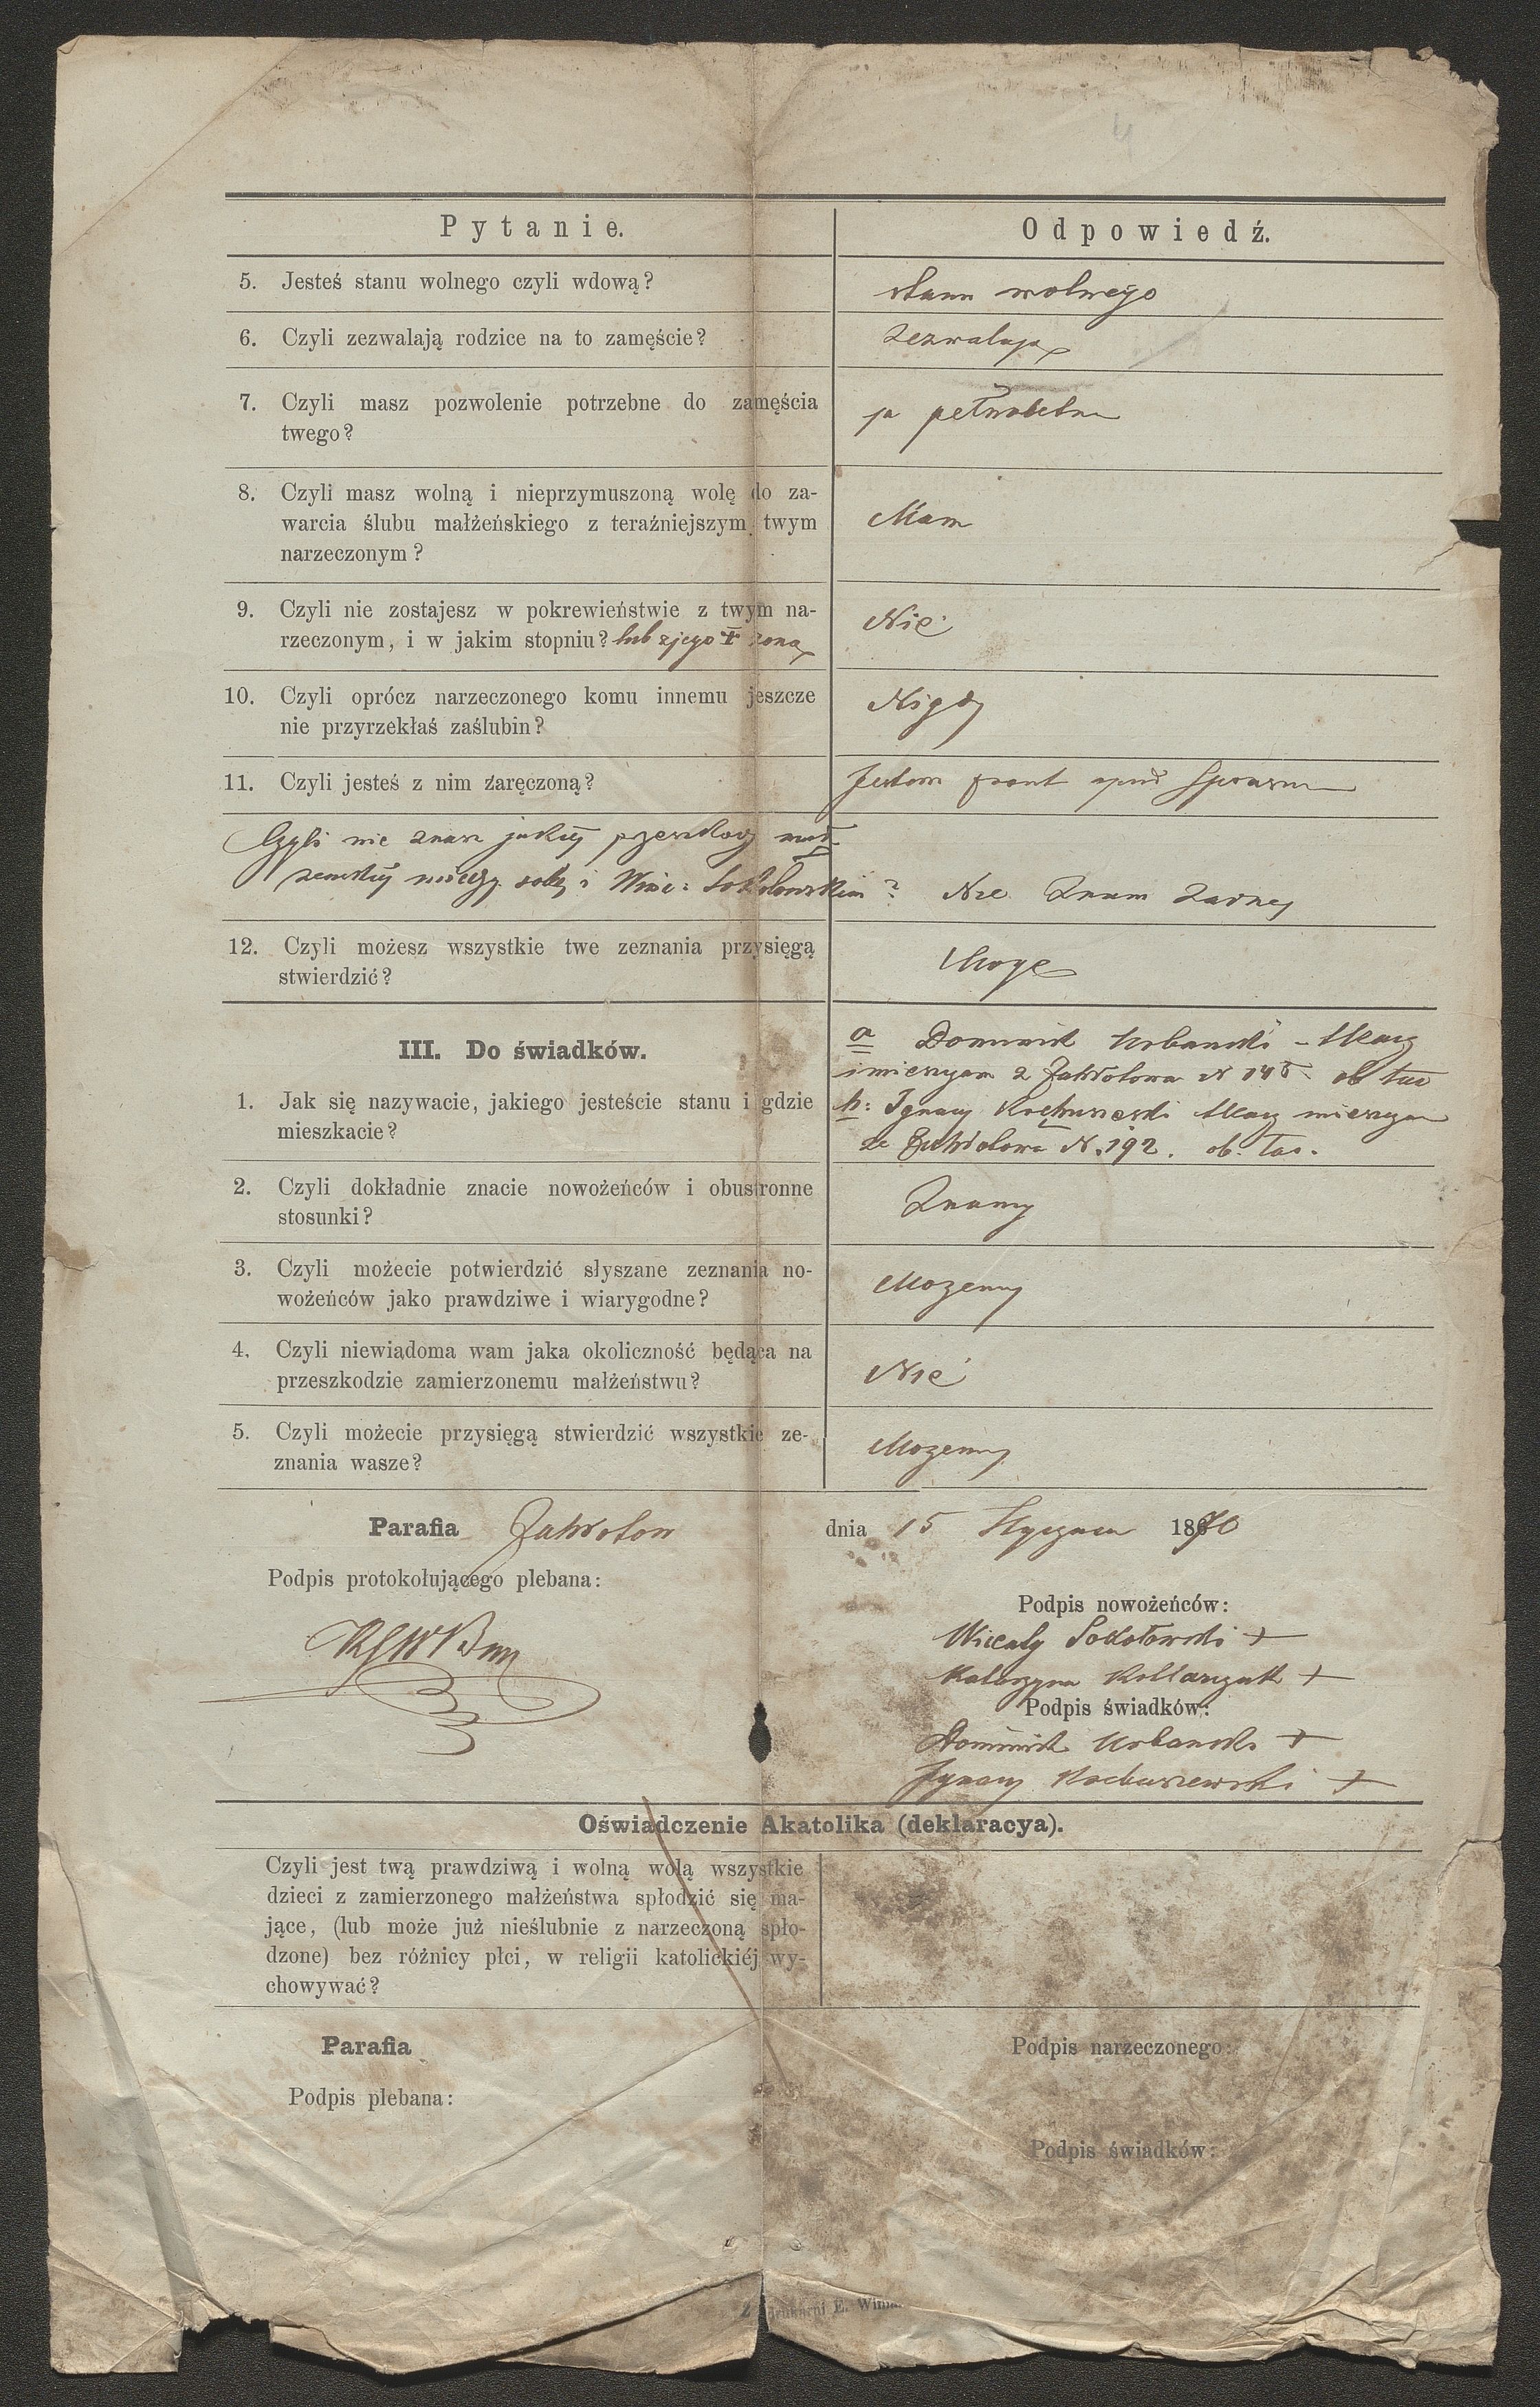 4
Pytanie.
Odpowiedź.
5. Jesteś stanu wolnego czyli wdową?
stanu wolnego
6. Czyli zezwalają rodzice na to zamęście?
zezwalają
7. Czyli masz pozwolenie potrzebne do zamęścia
twego?
8. Czyli masz wolną i nieprzymuszoną wolę do za-
warcia ślubu małżeńskiego z teraźniejszym twym
narzeczonym?
Mam
9. Czyli nie zostajesz w pokrewieństwie z twym na-
rzeczonym, i w jakim stopniu? lub z jego I żoną
Nie
10. Czyli oprócz narzeczonego komu innemu jeszcze
nie przyrzekłaś zaślubin?
Nigdy
11. Czyli jesteś z nim zaręczoną?
Jestem
Czyli nie znasz jakiej przeszkody mał-
żeńskiej między sobą i Winc: Sokołowskim?
Nie znam żadnej
12. Czyli możesz wszystkie twe zeznania przysięgą
stwierdzić?
Mogę
III. Do świadków.
1. Jak się nazywacie, jakiego jesteście stanu i gdzie
mieszkacie?
a Dominik Urbanski -
z N 145. ob. łac
b: Ignacy
ze N. 192. ob. łac.
2. Czyli dokładnie znacie nowożeńców i obustronne
stosunki?
Znamy
3. Czyli możecie potwierdzić słyszane zeznania no-
wożeńców jako prawdziwe i wiarygodne?
Mozemy
4. Czyli niewiadoma wam jaka okoliczność będąca na
przeszkodzie zamierzonemu małżeństwu?
Nie
5. Czyli możecie przysięgą stwierdzić wszystkie ze-
znania wasze?
Mozemy
Parafia
dnia 15 Stycznia 1870
Podpis protokołującego plebana:
Podpis nowożeńców:
Sokołowski +
Katarzyna +
Podpis świadków:
Dominik Urbanski +
Ignacy +
Oświadczenie Akatolika (deklaracya).
Czyli jest twą prawdziwą i wolną wolą wszystkie
dzieci z zamierzonego małżeństwa spłodzić się ma-
jące, (lub może już nieślubnie z narzeczoną spło-
dzone) bez różnicy płci, w religii katolickiéj wy-
chowywać?
Parafia
Podpis narzeczonego:
Podpis plebana:
Podpis świadków:
Z drukarni E.